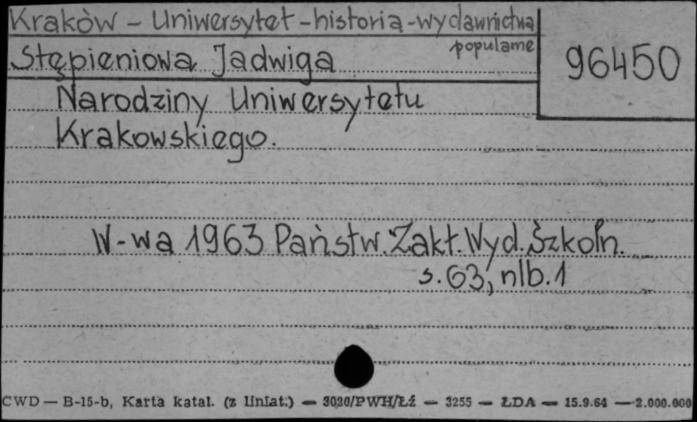 Kraków - Uniwersytet - historia - wydawnictwa
popularne
Stępieniowa Jadwiga
96450
Narodziny Uniwersytetu
Krakowskiego.
W-wa 1963 Państw. Zakł. Wyd. Szkoln.
s. 63, nlb. 1
CWD — B-15-b, Karta katal. (z liniat.) — 3020/PWH/Łź — 3255 — ŁDA — 15.9.64 — 2.000.000